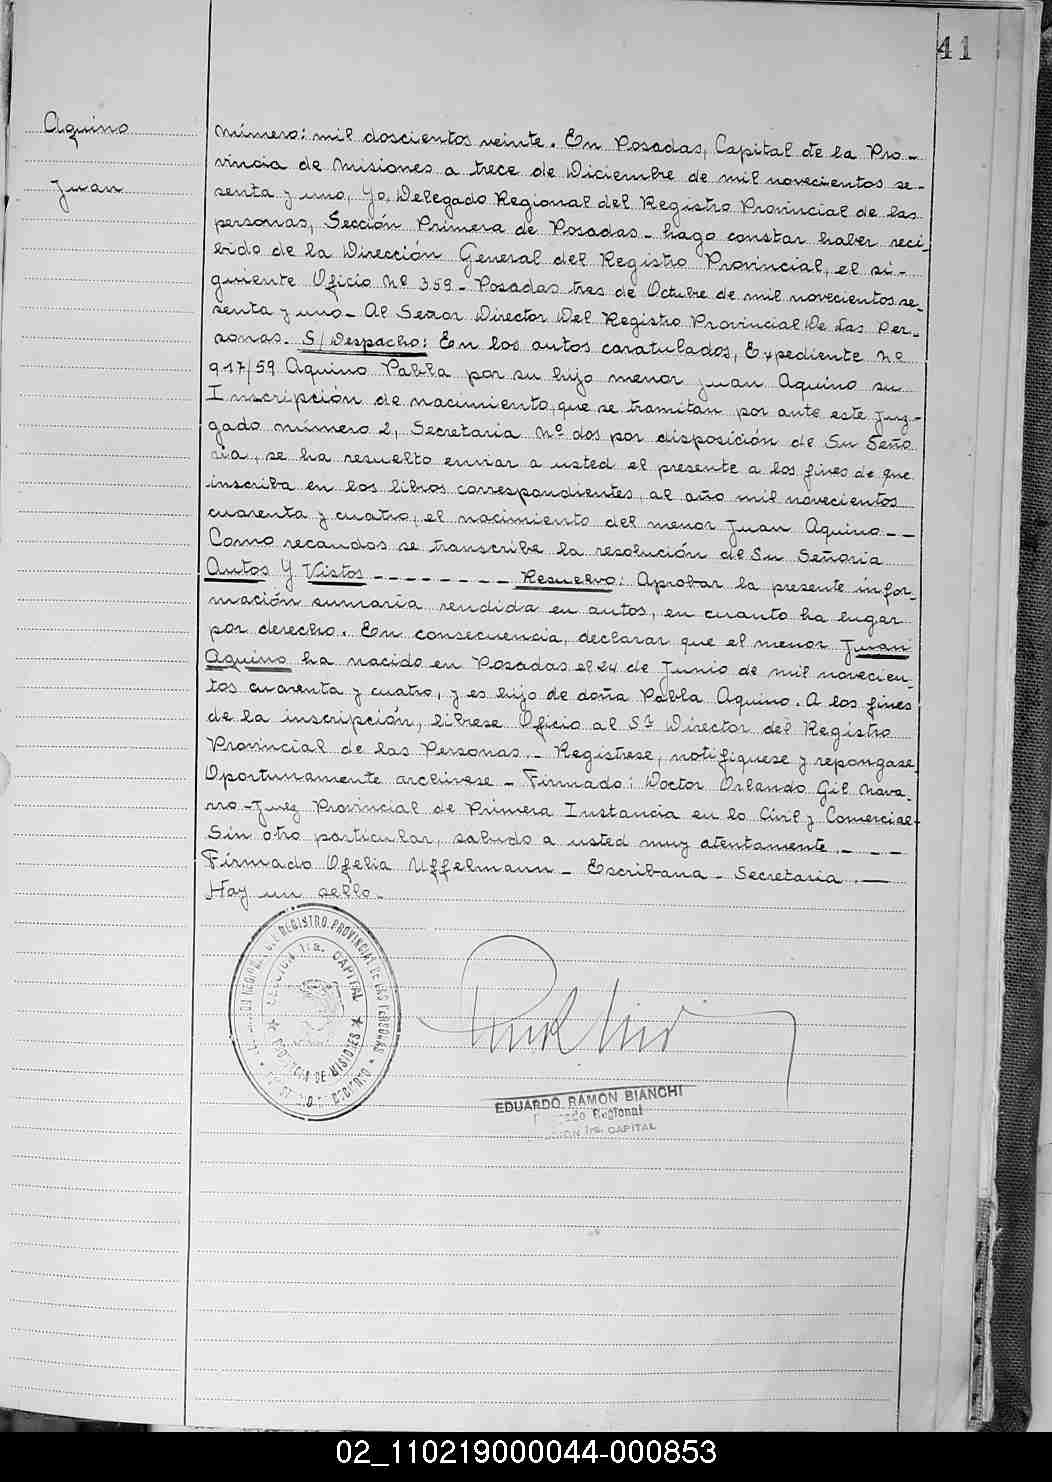 41
Aquino
Juan
Número: mil doscientos veinte. En Posadas, Capital de la Pro-
vincia de Misiones a trece de Diciembre de mil novecientos se-
senta y uno, Yo, Delegado Regional del Registro Provincial de las
personas, Sección Primera de Posadas - hago constar haber reci-
bido de la Dirección General del Registro Provincial, el si-
guiente Oficio Nº 359 - Posadas tres de Octubre de mil novecientos se-
senta y uno - Al Señor Director Del Registro Provincial De Las Per-
sonas. S/Despacho: En los autos caratulados, Expediente Nº
917/59 Aquino Pabla por su hijo menor Juan Aquino su
Inscripción de nacimiento, que se tramitan por ante este Juz-
gado número 2, Secretaria Nº dos por disposición de Su Seño
ria, se ha resuelto enviar a usted el presente a los fines de que
inscriba en los libros correspondientes, al año mil novecientos
cuarenta y cuatro, el nacimiento del menor Juan Aquino - -
Como recaudos se transcribe la resolución de Su Señoria
Autos Y Vistos - - - - - - - - Resuelvo: Aprobar la presente infor-
mación sumaria rendida en autos, en cuanto ha lugar
por derecho. En consecuencia, declarar que el menor Juan
Aquino ha nacido en Posadas el 24 de Junio de mil novecien-
tos cuarenta y cuatro, y es hijo de doña Pabla Aquino. A los fines
de la inscripción, librese Oficio al Sr Director del Registro
Provincial de las Personas. - Registrese, notifiquese y repongase.
Oportunamente archivese - Firmado: Doctor Orlando Gil Nava-
rro - Juez Provincial de Primera Instancia en lo Civil y Comercial-
Sin otro particular, saludo a usted muy atentamente. - - -
Firmado Ofelia Uffelmann - Escribana - Secretaria. -
Hay un sello -
REGISTRO PROVINCIAL DE LAS PERSONAS
SECCION 1ra. CAPITAL
PROVINCIA DE MISIONES
EDUARDO RAMON BIANCHI
Regional
1ra. CAPITAL
02_110219000044-000853